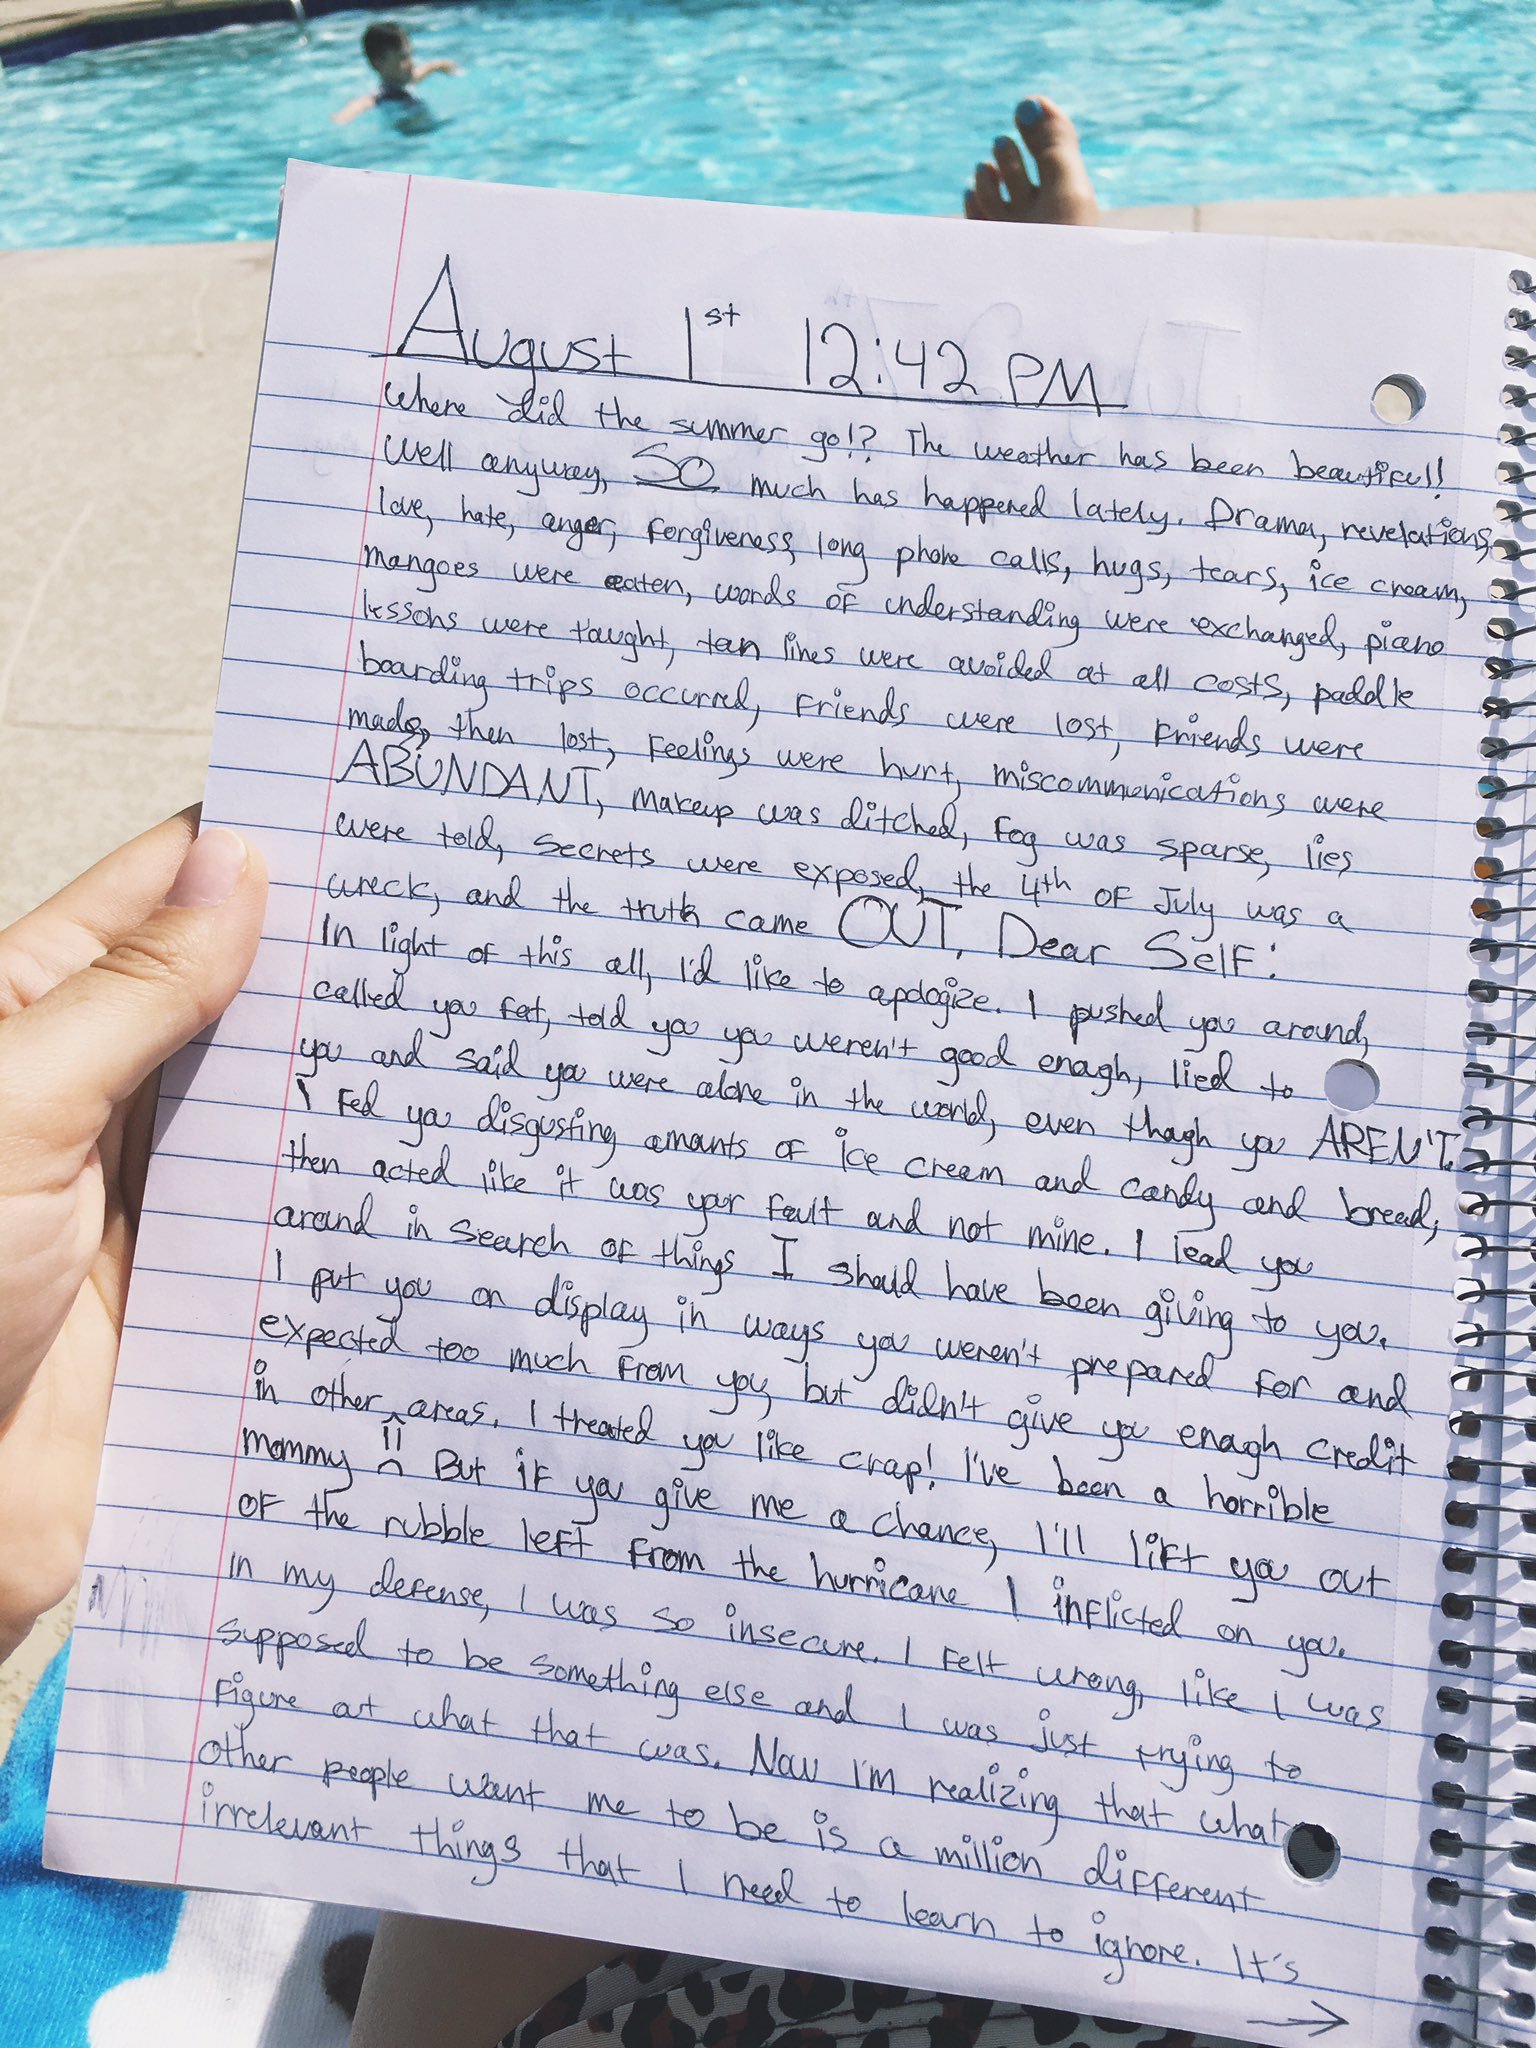 August 1st 12:42 PM
Where did the summer go!? The weather has been beautiful!
Well anyway, SO much has happened lately. Drama, revelations,
love, hate, anger, forgiveness, long phone calls, hugs, tears, ice cream,
mangoes were eaten, words of understanding were exchanged, piano
lessons were taught, tan lines were avoided at all costs, paddle
boarding trips occurred, friends were lost, friends were
made, then lost, feelings were hurt, miscommunications were
ABUNDANT, makeup was ditched, fog was sparse, lies
were told, secrets were exposed, the 4th of July was a
wreck, and the truth came OUT. Dear Self:
In light of this all, I'd like to apologize. I pushed you around,
called you fat, told you you weren't good enough, lied to
you and said you were alone in the world, even though you AREN'T.
I fed you disgusting amounts of ice cream and candy and bread,
then acted like it was your fault and not mine. I lead you
around in search of things I should have been giving to you.
I put you on display in ways you weren't prepared for and
expected too much from you, but didn't give you enough credit
in other areas. I treated you like crap! I've been a horrible
mommy But if you give me a chance, I'll lift you out
of the rubble left from the hurricane I inflicted on you.
In my defense, I was so insecure. I felt wrong, like I was
supposed to be something else and I was just trying to
figure out what that was. Now I'm realizing that what
other people want me to be is a million different
irrelevant things that I need to learn to ignore. It's